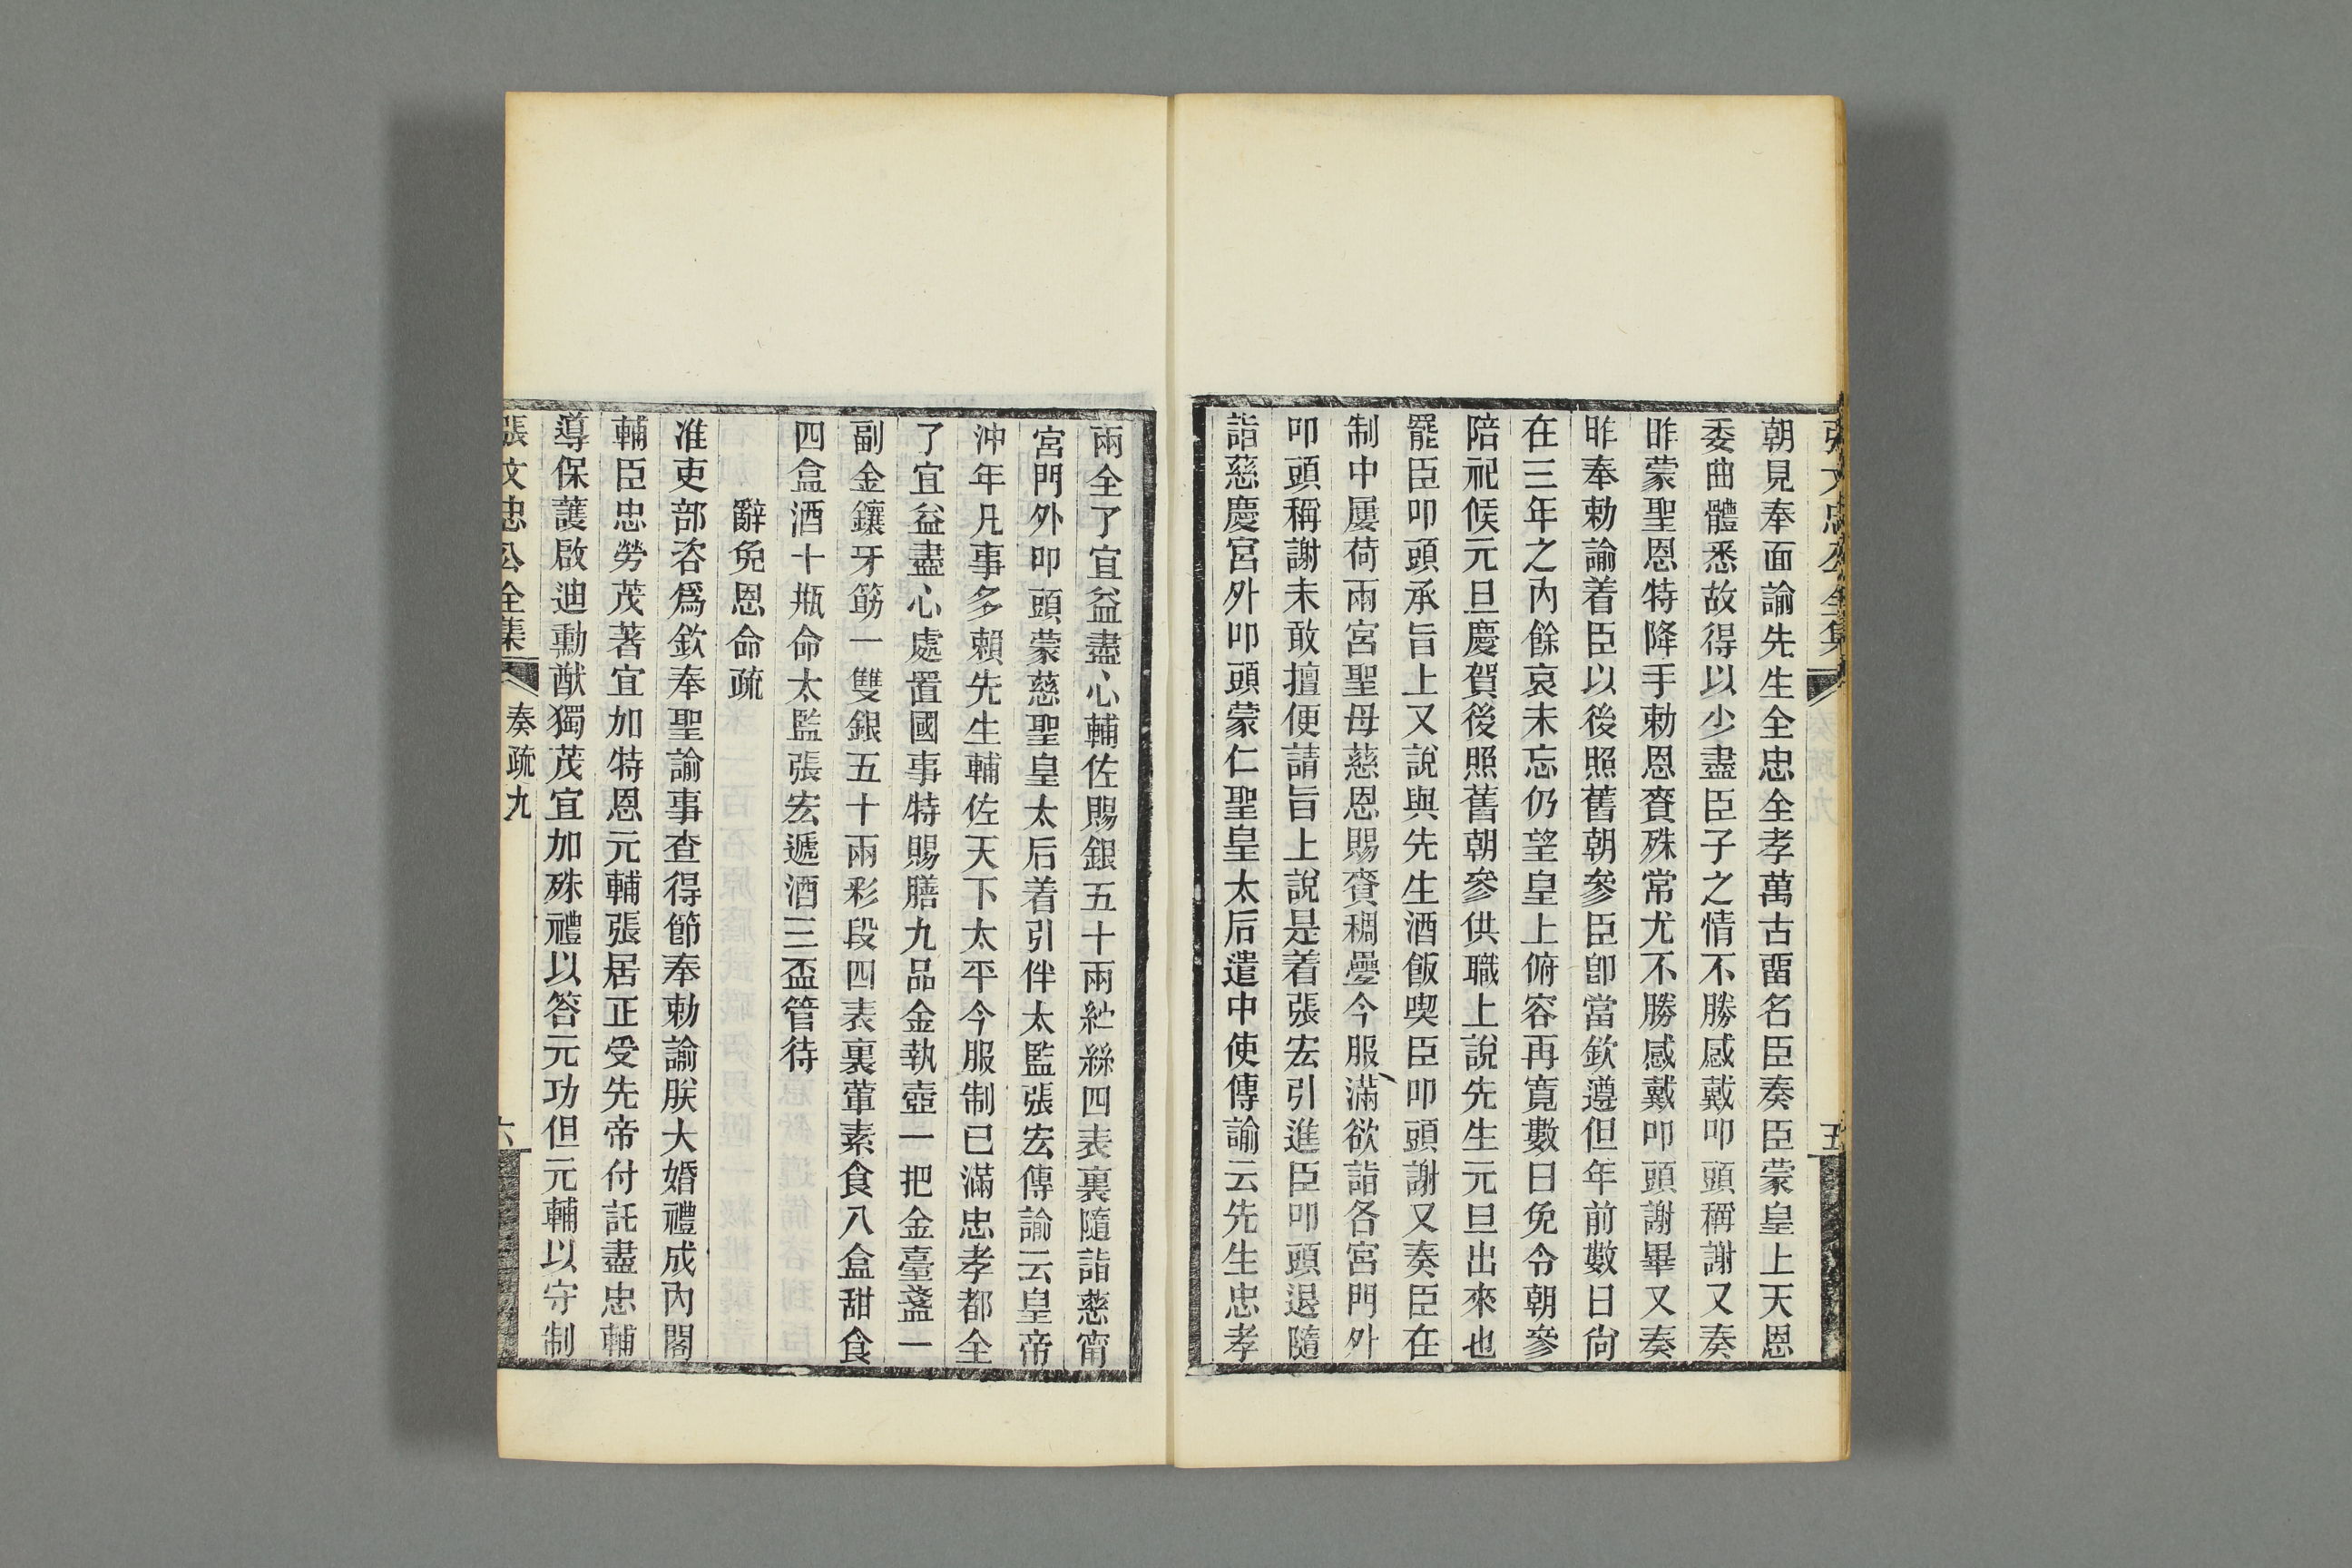 張文忠公全集
五
朝見奉面諭先生全忠全孝萬古畱名臣奏臣蒙皇上天恩
委曲體悉故得以少盡臣子之情不勝感戴叩頭稱謝又奏
昨蒙聖恩特降手勅恩賚殊常尤不勝感戴叩頭謝畢又奏
昨奉勅諭着臣以後照舊朝參臣卽當欽遵但年前數日尙
在三年之內餘哀未忘仍望皇上俯容再寬數日免令朝參
陪祀候元旦慶賀後照舊朝參供職上說先生元旦出來也
罷臣叩頭承旨上又說與先生酒飯喫臣叩頭謝又奏臣在
制中屢荷兩宮聖母慈恩賜賚稠疊今服滿欲詣各宮門外
叩頭稱謝未敢擅便請旨上說是着張宏引進臣叩頭退隨
詣慈慶宮外叩頭蒙仁聖皇太后遣中使傳諭云先生忠孝
兩全了宜益盡心輔佐賜銀五十兩紵絲四表裏隨詣慈甯
宮門外叩頭蒙慈聖皇太后着引伴太監張宏傳諭云皇帝
沖年凡事多賴先生輔佐天下太平今服制已滿忠孝都全
了宜益盡心處置國事特賜膳九品金執壺一把金臺盞一
副金鑲牙筯一雙銀五十兩彩段四表裏葷素食八盒甜食
四盒酒十瓶命太監張宏遞酒三盃管待
辭免恩命疏
准吏部咨爲欽奉聖諭事查得節奉勅諭朕大婚禮成內閣
輔臣忠勞茂著宜加特恩元輔張居正受先帝付託盡忠輔
導保護啟迪勳猷獨茂宜加殊禮以答元功但元輔以守制
張文忠公全集
奏疏九
六